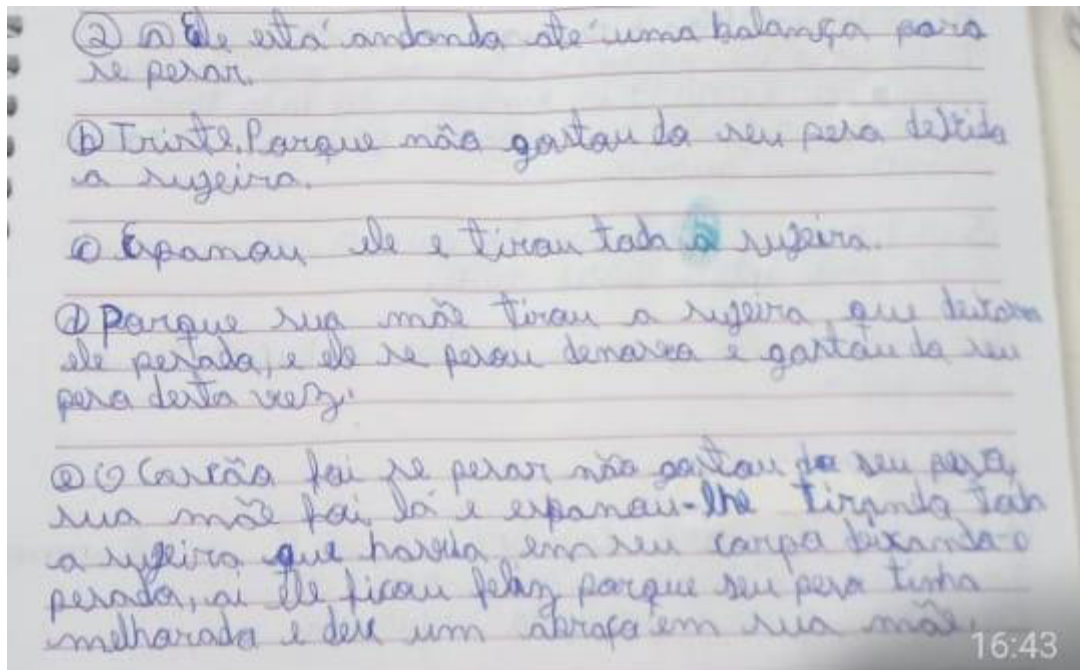 ② a Ele está andando até uma balança para
se pesar.
ⓑ Triste. Porque não gostou do seu peso devido
a sujeira.
ⓒ Espanou ele e tirou toda a sujeira.
ⓓ Porque sua mãe tirou a sujeira que deixava
ele pesado, e ele se pesou denovo e gostou do seu
peso desta vez.
ⓔ O Cascão foi se pesar não gostou do seu peso,
sua mãe foi lá e espanou-lhe tirando toda
a sujeira que havia em seu corpo deixando-o
pesado, ai ele ficou feliz porque seu peso tinha
melhorado e deu um abraço em sua mãe.
16:43